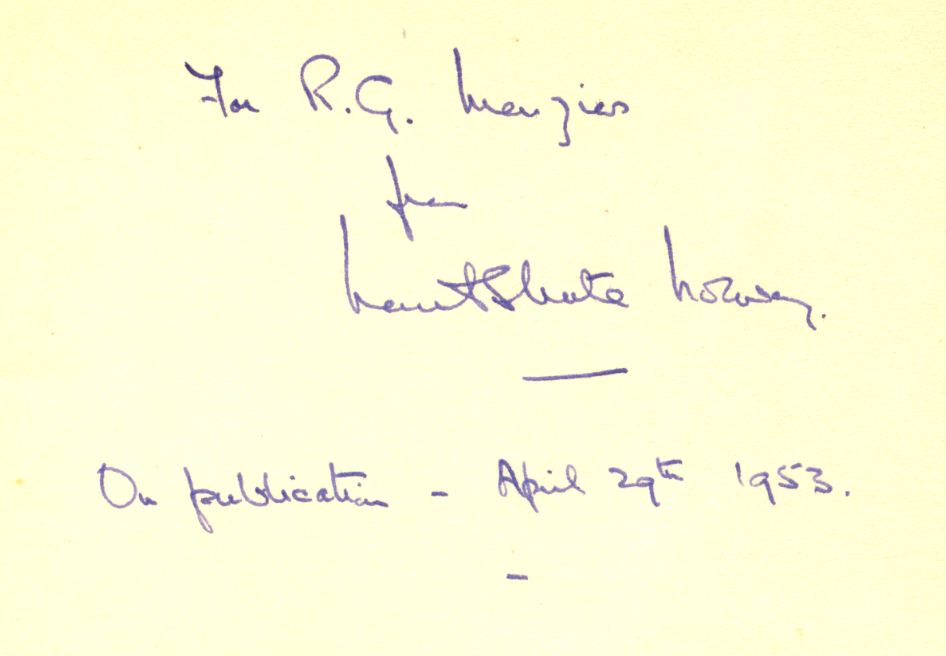 For R.G. Menzies
from
Nevil Shute Norway.
On publication - April 29th 1953.